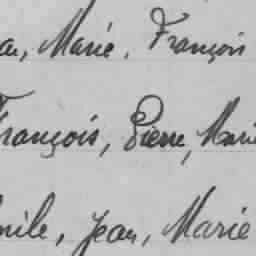 Marie, François
François, Pierre, Marie
Jean, Marie